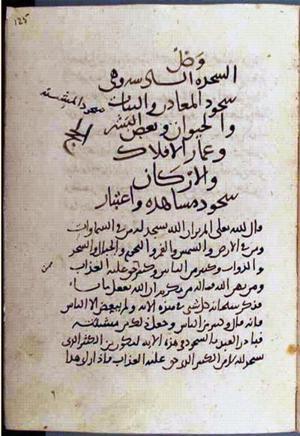 ١٢٥
وصل
السجدة السادسة وهي
سجود المعادن والنبات
سجود المشيئة
الحج
والحيوان وبعض البشر
وعمار الافلاك
والاركان
سجود مشاهدة واعتبار
قال الله تعالى الم تر ان الله يسجد له من في السماوات
ومن في الارض والشمس والقمر والنجوم والجبال والشجر
والدواب وكثير من الناس وكثير حق عليه العذاب
ومن يهن الله فما له من مكرم ان الله يفعل ما يشاء
فذكر سبحانه كل شي في هذه الاية ولم يبعض الا الناس
فانه قال وكثير من الناس وجعل ذلك من مشيئته
فبادر العبد بالسجود في هذه الاية ليكون من الكثير الذي
يسجد لله لا من الكثير الذي حق عليه العذاب فاذا راى هذا